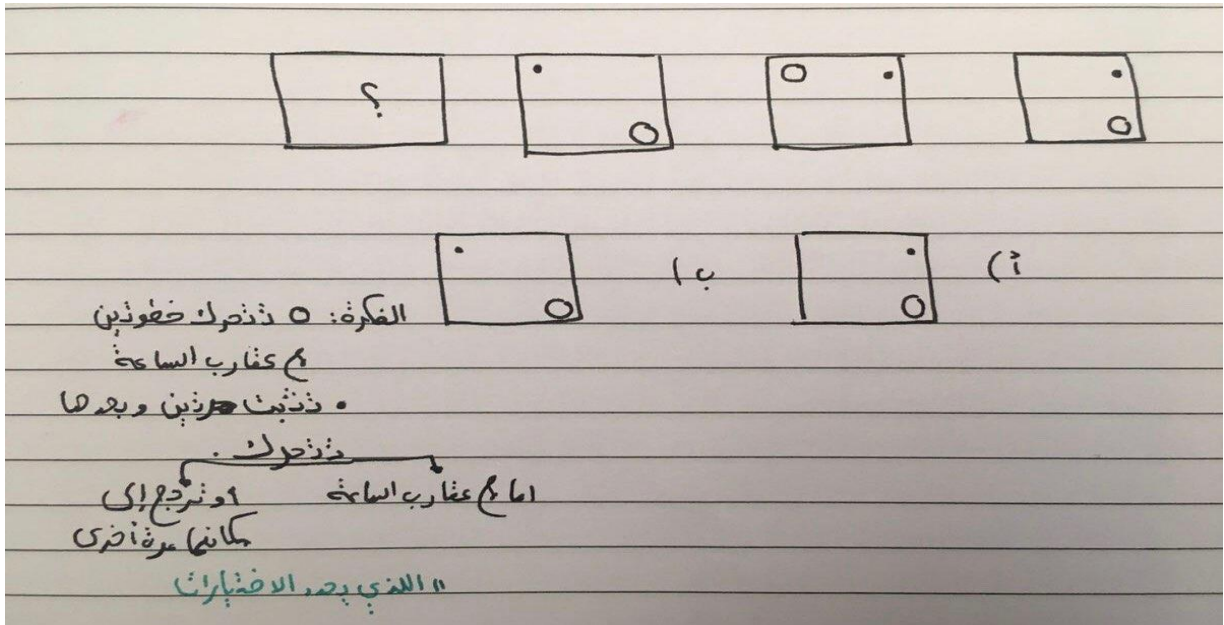 ؟
أ)
ب)
الفكرة: O تتحرك خطوتين
مع عقارب الساعة
• تثبت مرتين وبعدها
تتحرك.
اما مع عقارب الساعة
أو ترجع إلى
مكانها مرة أخرى
"اللذي يحدد الاختيارات